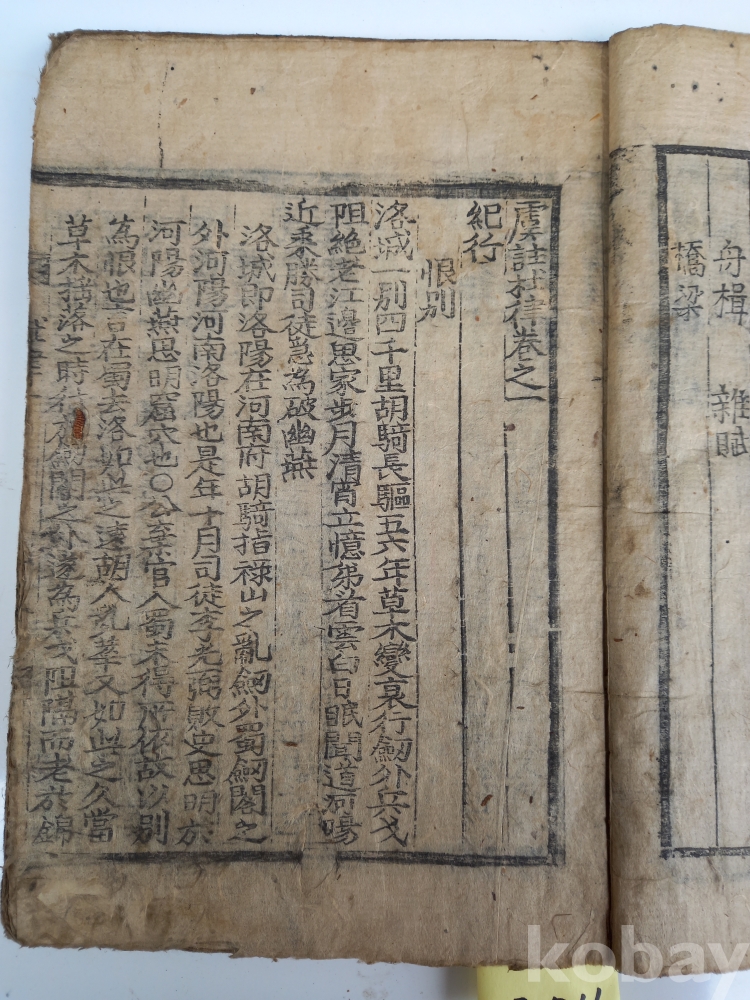 舟楫 雜賦
橋梁
虞註杜律卷之一
紀行
恨別
洛城一別四千里胡騎長驅五六年草木變衰行劒外兵戈
阻絶老江邊思家步月淸宵立憶弟看雲白日眠聞道河陽
近乘勝司徒急為破幽燕
洛城即洛陽在河南府胡騎指祿山之亂劒外蜀劒閣之
外河陽河南洛陽也是年十月司徒李光弼敗史思明於
河陽幽燕思明窟穴也○公棄官入蜀未得所依故以別
為恨也言在蜀去洛如此之遠胡人亂華又如此之久當
草木搖落之時 劒閣之外遂為兵戈阻隔而老於錦
kobay